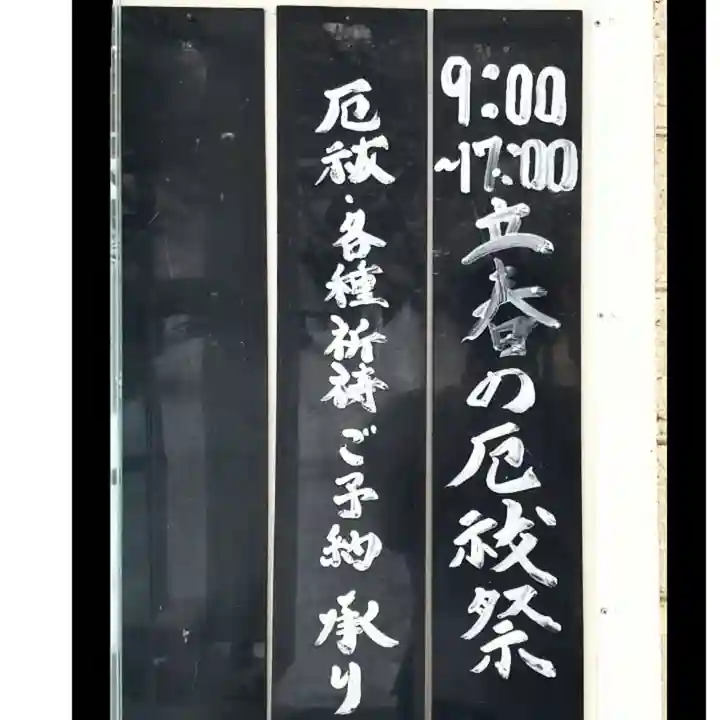 9:00
~17:00
立春の厄祓祭
厄祓・各種祈祷ご予約承り